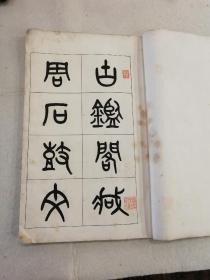 古鑑閣藏
周石鼓文